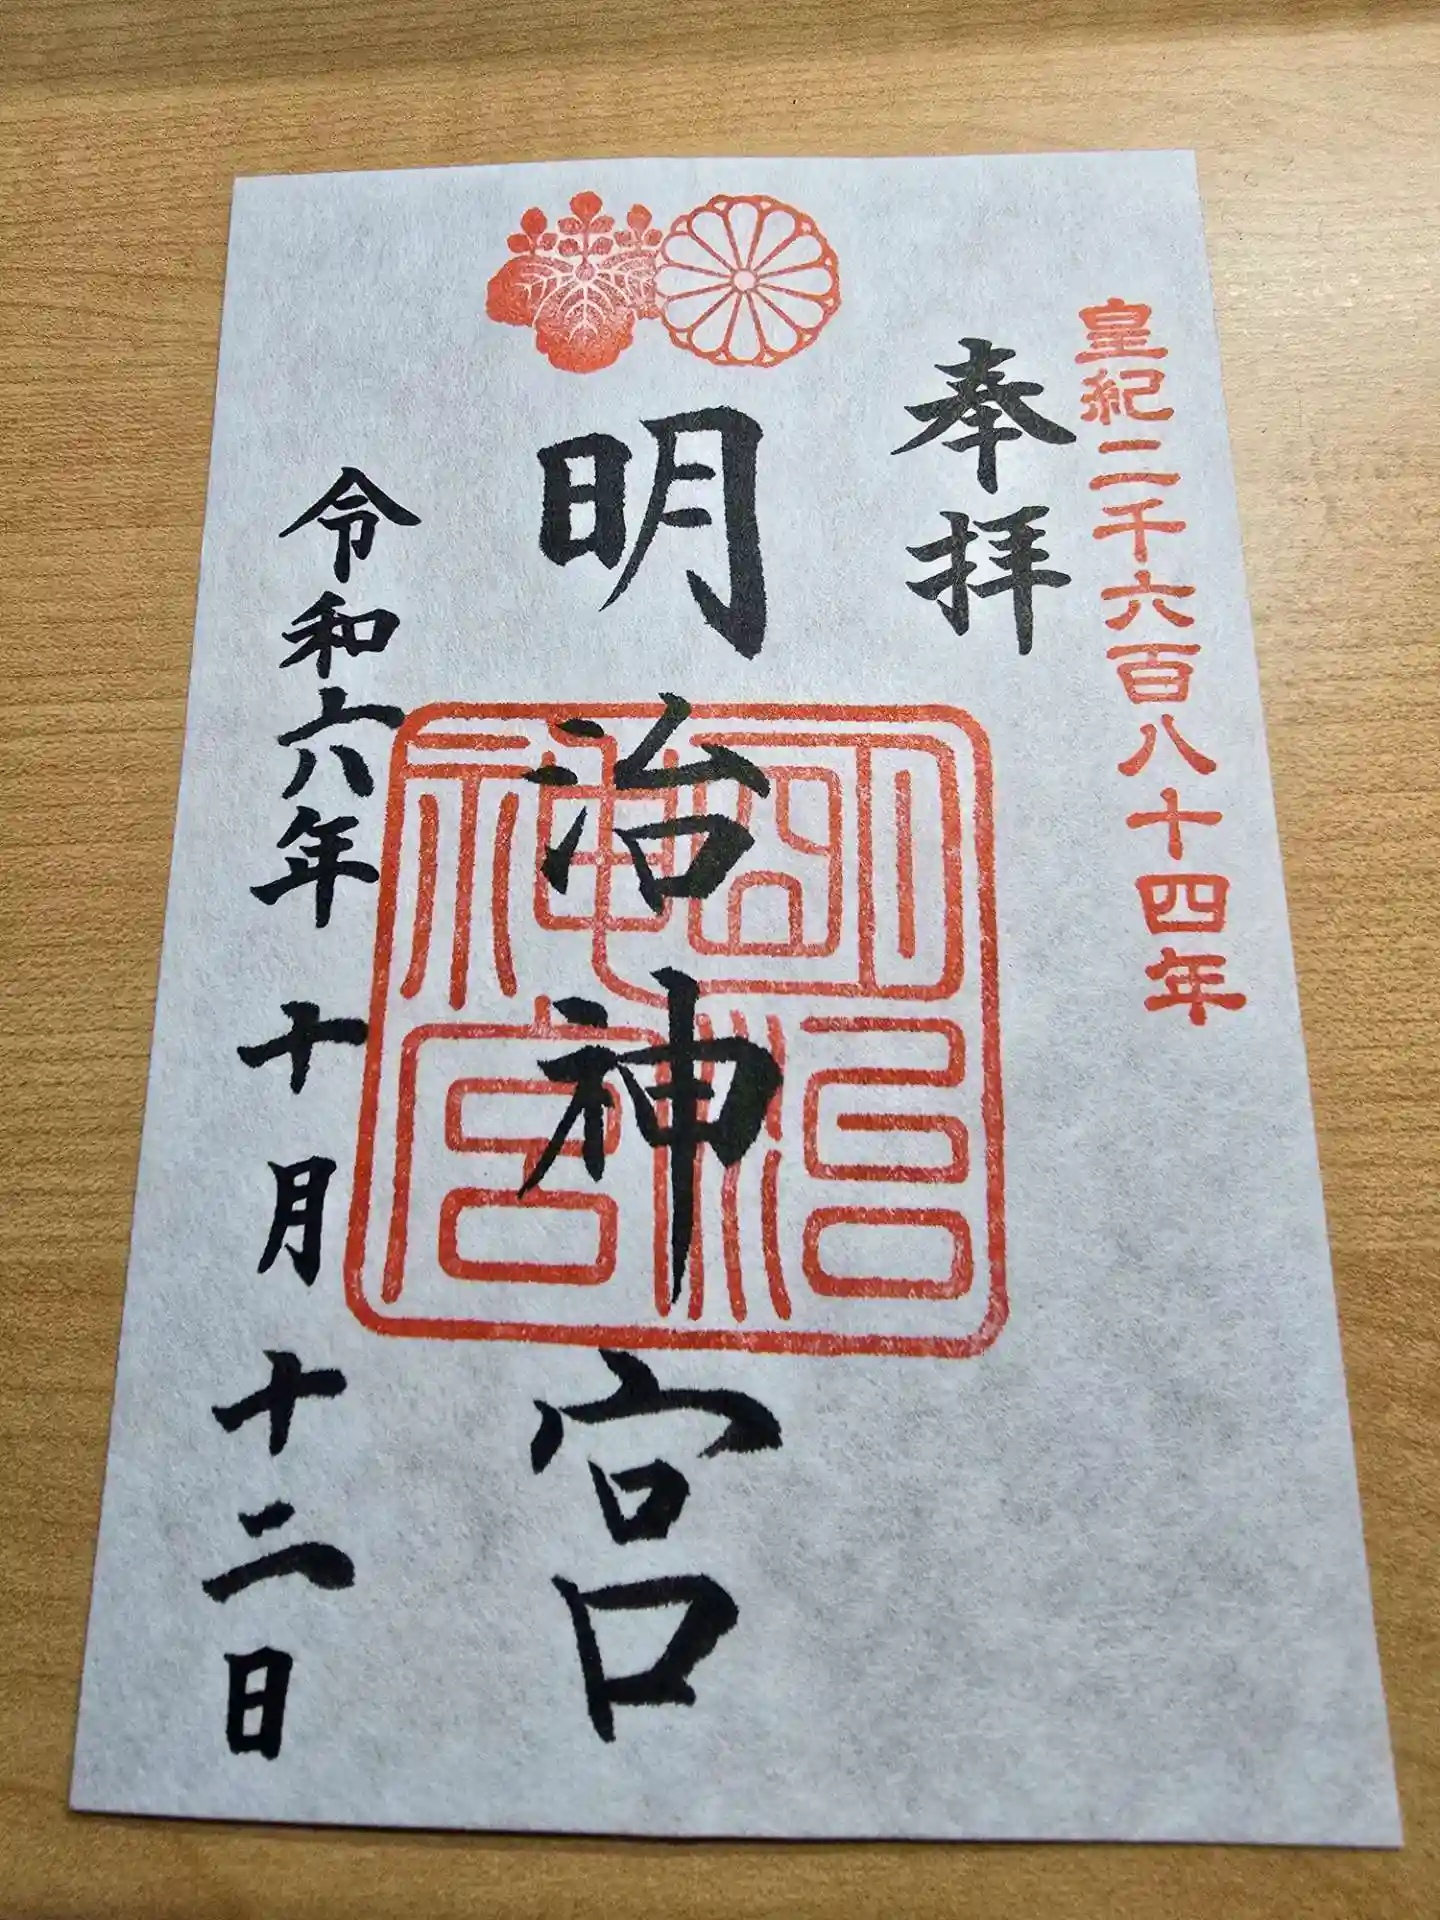 皇紀二千六百八十四年
奉拝
明治神宮
明治神宮
令和六年十月十二日